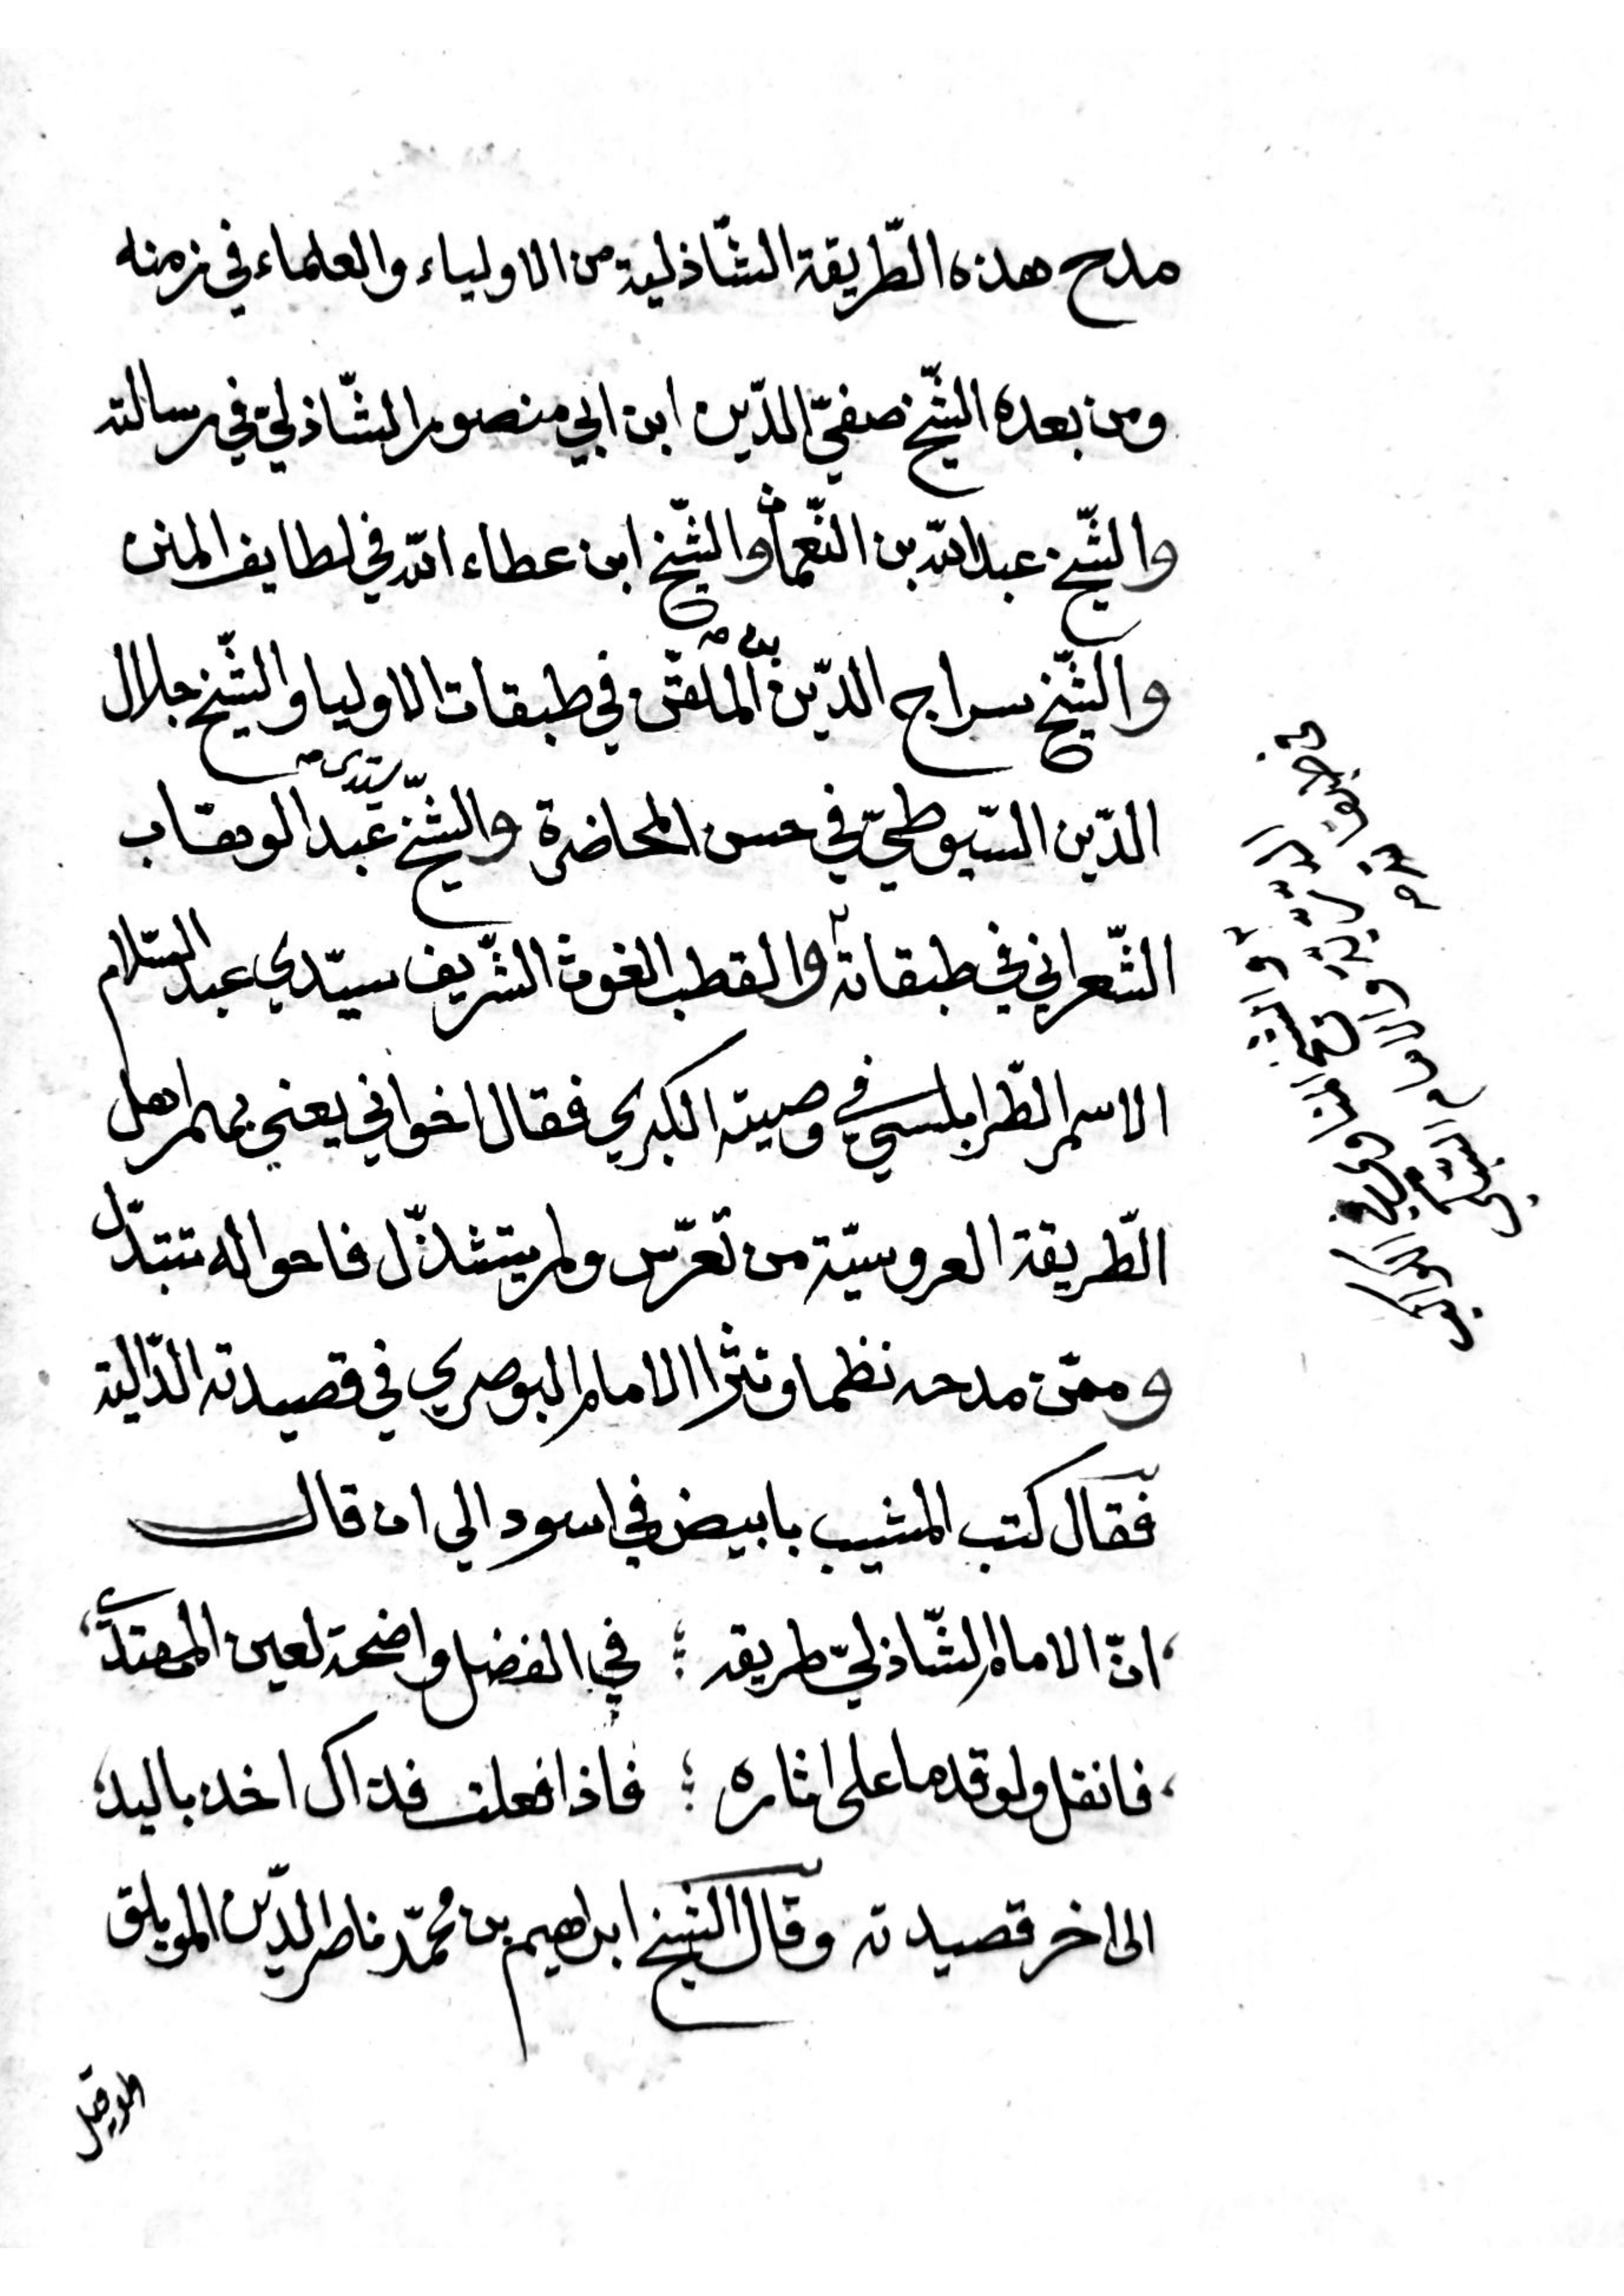 مدح هذه الطّريقة الشّاذلية من الاولياء والعلماء في زمنه
ومن بعده الشّيخ صفيّ الدّين ابن ابي منصور الشّاذليّ في رسالته
والشّيخ عبد الله بن النّعمان والشّيخ ابن عطاء الله في لطايف المنن
والشّيخ سراج الدّين بن الملقّن في طبقات الاوليا والشّيخ جلال
الدّين السّيوطيّ في حسن المحاضرة والشّيخ سيّدى عبد الوهاب
الشّعراني في طبقاته والقطب الغوث الشّريف سيّدي عبد السّلام
الاسمر الطّرابلسي في وصيته الكبري فقال اخواني يعني بهم اهل
الطّريقة العروسيّة من تعرّس ولم يتشذّل فاحواله تتبدّل
وممّن مدحه نظما ونثرا الامام البوصري في قصيدته الدّالية
فقال كتب المشيب بابيض في اسود الي ان قال
انّ الامام الشّاذليّ طريقه ؛ في الفضل واضحة لعين المهتدي
فانقل ولو قدما على اثاره ؛ فاذا فعلت فذاك اخذ باليد
الى اخر قصيدته وقال الشّيخ ابراهيم بن محمّد ناصر الدّين المويلق